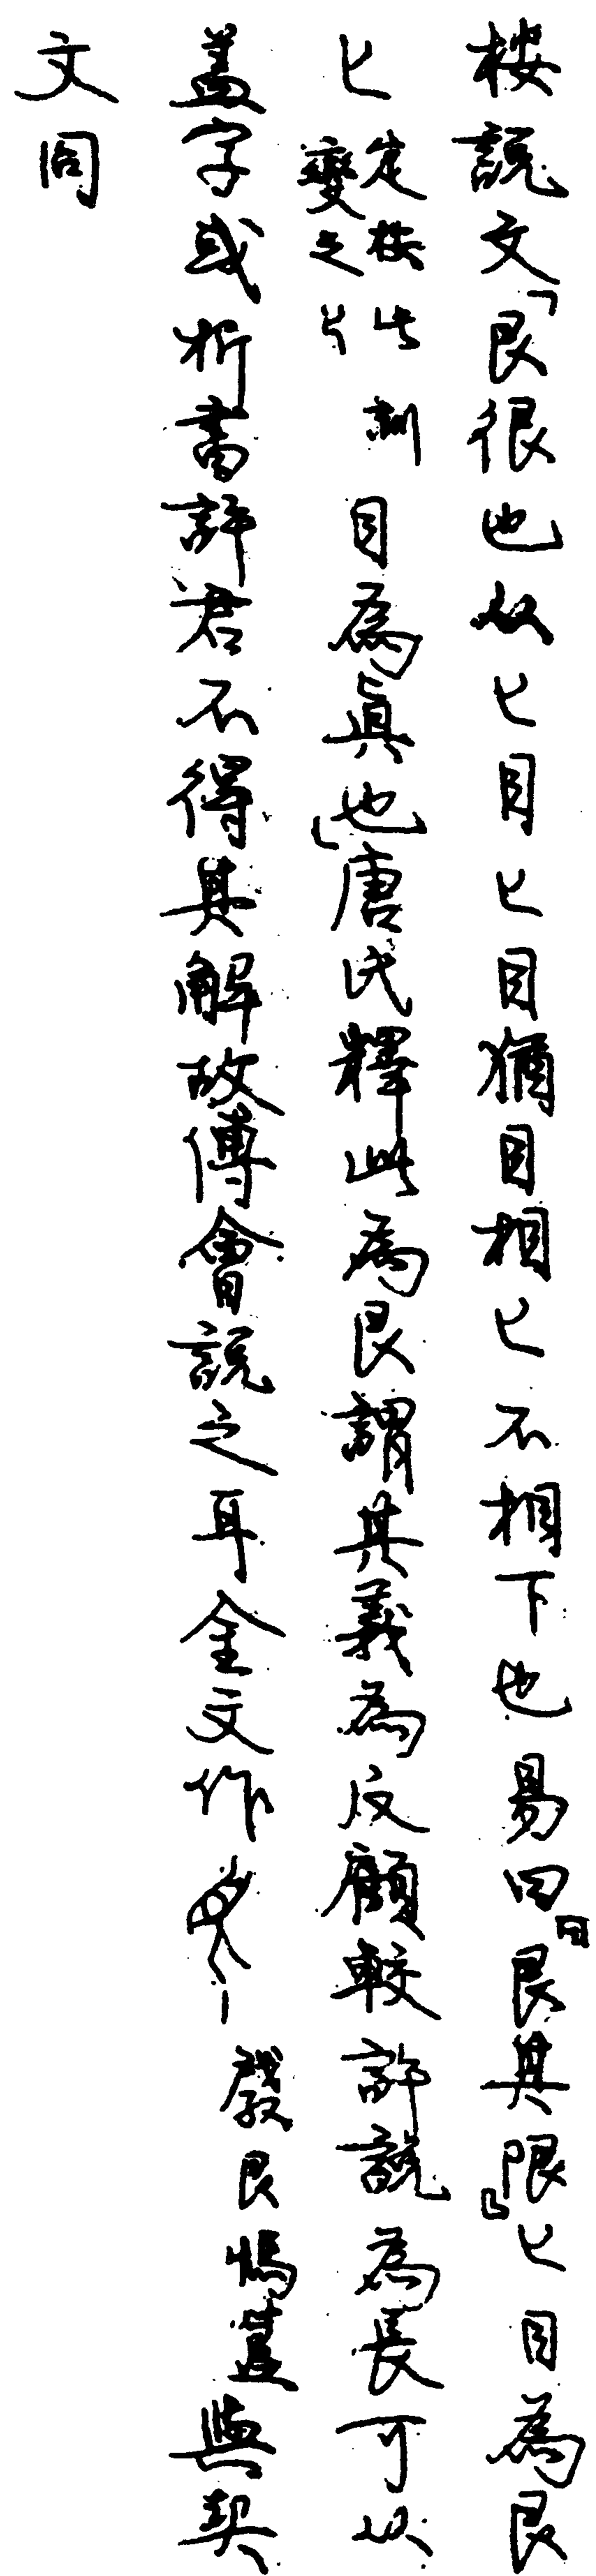 桉說文「艮很也从匕目匕目猶目相匕不相下也易曰『艮其限』匕目為艮
匕定桉此訓變之匕目為眞也」唐氏釋此為艮謂其義為反顧較許說為長可从
蓋字或析書許君不得其解故傅會說之耳金文作艮簋與契
文同